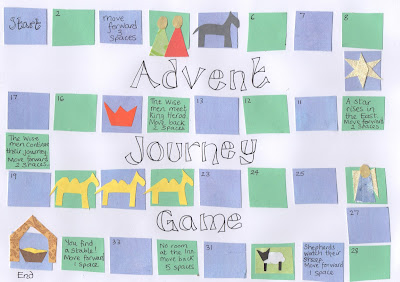 Start
2
move
forward
spaces
6
7
8
Advent
17
16
The Wise
men meet
King Herod.
Move back
2 spaces
13
12
11
A star
rises in
the East.
Move forward
2 spaces
The Wise
men continue
their journey.
Move forward
2 spaces
Journey
19
23
24
25
Game
27
You find
a stable!
Move forward
1 space
33
No room
at the Inn
move back
5 spaces
31
Shepherds
watch their
sheep.
Move forward
1 space
28
End